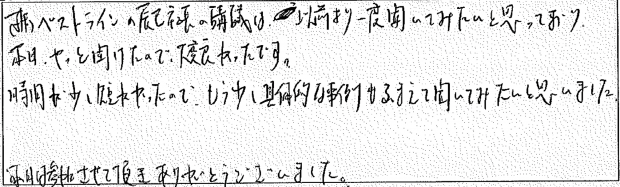 ㈱ベストラインの辰己社長の講議は、以前より一度聞いてみたいと思っており、
本日、やっと聞けたので、大変良かったです。
時間が少し短かったので、もう少し具体的な事例もふまえて聞いてみたいと思いました。
本日は参加させて頂きありがとうございました。